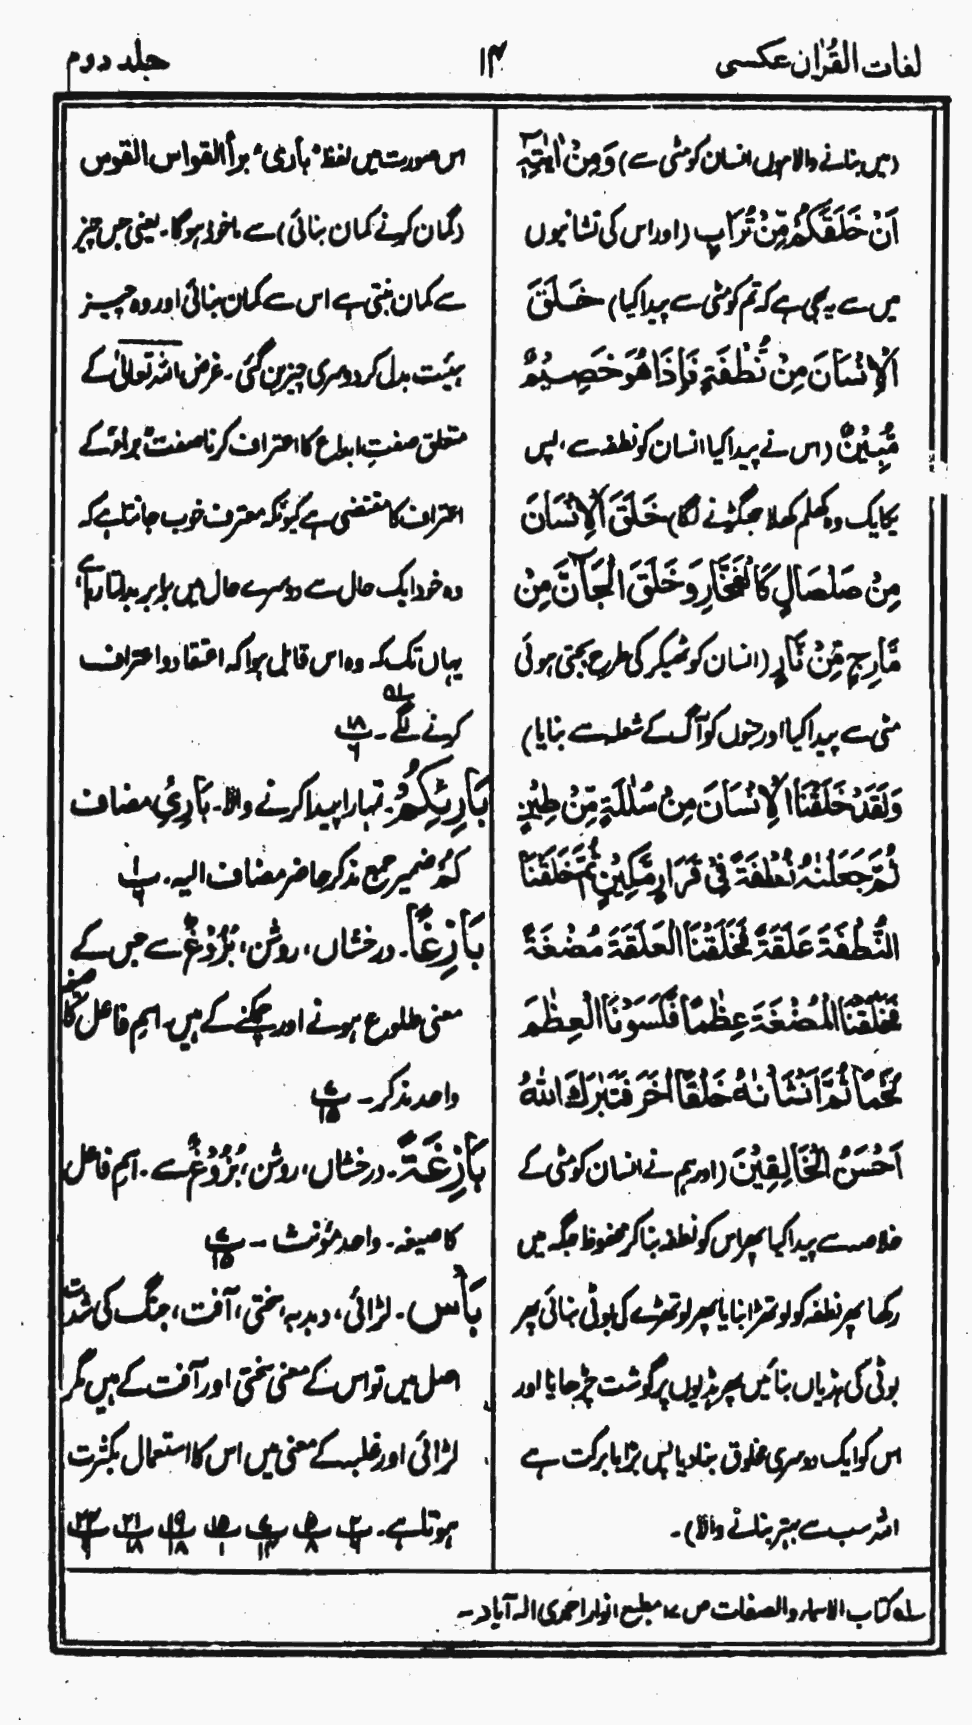 لغات القرآن عکسی
۱۴
جلد دوم
(میں بنانے والا ہوں انسان کو مٹی سے) وَمِنْ اٰیٰتِہٖ
اَنْ خَلَقَکُمْ مِّنْ تُرَابٍ (اور اس کی نشانیوں
میں سے یہ بھی ہے کہ تم کو مٹی سے پیدا کیا) خَلَقَ
الْاِنْسَانَ مِنْ نُّطْفَۃٍ فَاِذَا ھُوَ خَصِیْمٌ
مُّبِیْنٌ (اس نے پیدا کیا انسان کو نطفہ سے، پس
یکایک وہ کھلم کھلا جھگڑنے لگا) خَلَقَ الْاِنْسَانَ
مِنْ صَلْصَالٍ کَالْفَخَّارِ وَخَلَقَ الْجَآنَّ مِنْ
مَّارِجٍ مِّنْ نَّارٍ (انسان کو ٹھیکر کی طرح بجتی ہوئی
مٹی سے پیدا کیا اور جنوں کو آگ کے شعلہ سے بنایا)
وَلَقَدْ خَلَقْنَا الْاِنْسَانَ مِنْ سُلٰلَۃٍ مِّنْ طِیْنٍ
ثُمَّ جَعَلْنٰہُ نُطْفَۃً فِیْ قَرَارٍ مَّکِیْنٍ ثُمَّ خَلَقْنَا
النُّطْفَۃَ عَلَقَۃً فَخَلَقْنَا الْعَلَقَۃَ مُضْغَۃً
فَخَلَقْنَا الْمُضْغَۃَ عِظٰمًا فَکَسَوْنَا الْعِظٰمَ
لَحْمًا ثُمَّ اَنْشَاْنٰہُ خَلْقًا اٰخَرَ فَتَبٰرَکَ اللّٰہُ
اَحْسَنُ الْخَالِقِیْنَ (اور ہم نے انسان کو مٹی کے
خلاصہ سے پیدا کیا پھر اس کو نطفہ بنا کر محفوظ جگہ میں
رکھا پھر نطفہ کو لوتھڑا بنایا پھر لوتھڑے کی بوٹی بنائی پھر
بوٹی کی ہڈیاں بنائیں پھر ہڈیوں پر گوشت چڑھایا اور
اس کو ایک دوسری مخلوق بنا دیا پس بڑا بابرکت ہے
اللہ سب سے بہتر بنانے والا)۔
اس صورت میں لفظ "باری" برأ القواس القوس
(کمان گر نے کمان بنائی) سے ماخوذ ہوگا۔ یعنی جس چیز
سے کمان بنتی ہے اس سے کمان بنائی اور وہ چیز
ہیئت بدل کر دوسری چیز بن گئی۔ غرض اللہ تعالیٰ کے
متعلق صفتِ ابداع کا اعتراف کرنا صفت برأو کے
اعتراف کا مقتضی ہے کیونکہ معترف خوب جانتا ہے کہ
وہ خود ایک حال سے دوسرے حال میں برابر بدلتا رہا ہے،
یہاں تک کہ وہ اس قابل ہوا کہ اعتقاد و اعتراف
کرنے لگے۔ ۱ه ۱۸/۶
بَارِئِکُمْ۔ تمہارا پیدا کرنے والا۔ بَارِئِ مضاف
کُمْ ضمیر جمع مذکر حاضر مضاف الیہ۔ ۱/۶
بَازِغًا۔ درخشاں، روشن، بُزُوْغٌ سے جس کے
معنی طلوع ہونے اور چمکنے کے ہیں۔ اسمِ فاعل کا صیغہ
واحد مذکر۔ ۷/۱۵
بَازِغَۃً۔ درخشاں، روشن، بُزُوْغٌ سے۔ اسمِ فاعل
کا صیغہ۔ واحد مؤنث۔ ۷/۱۵
بَاْس۔ لڑائی، دبدبہ، سختی، آفت، جنگ کی شدت
اصل میں تو اس کے معنی سختی اور آفت کے ہیں مگر
لڑائی اور غلبہ کے معنی میں اس کا استعمال بکثرت
ہوتا ہے۔ ۲/۶ ۵/۸ ۷/۱۲ ۱۵/۱ ۱۹/۱۸ ۲۱/۱۸ ۲۲/۹
۱ه کتاب الاسماء والصفات ص ۱۷ مطبع انوار احمدی الہ آباد۔